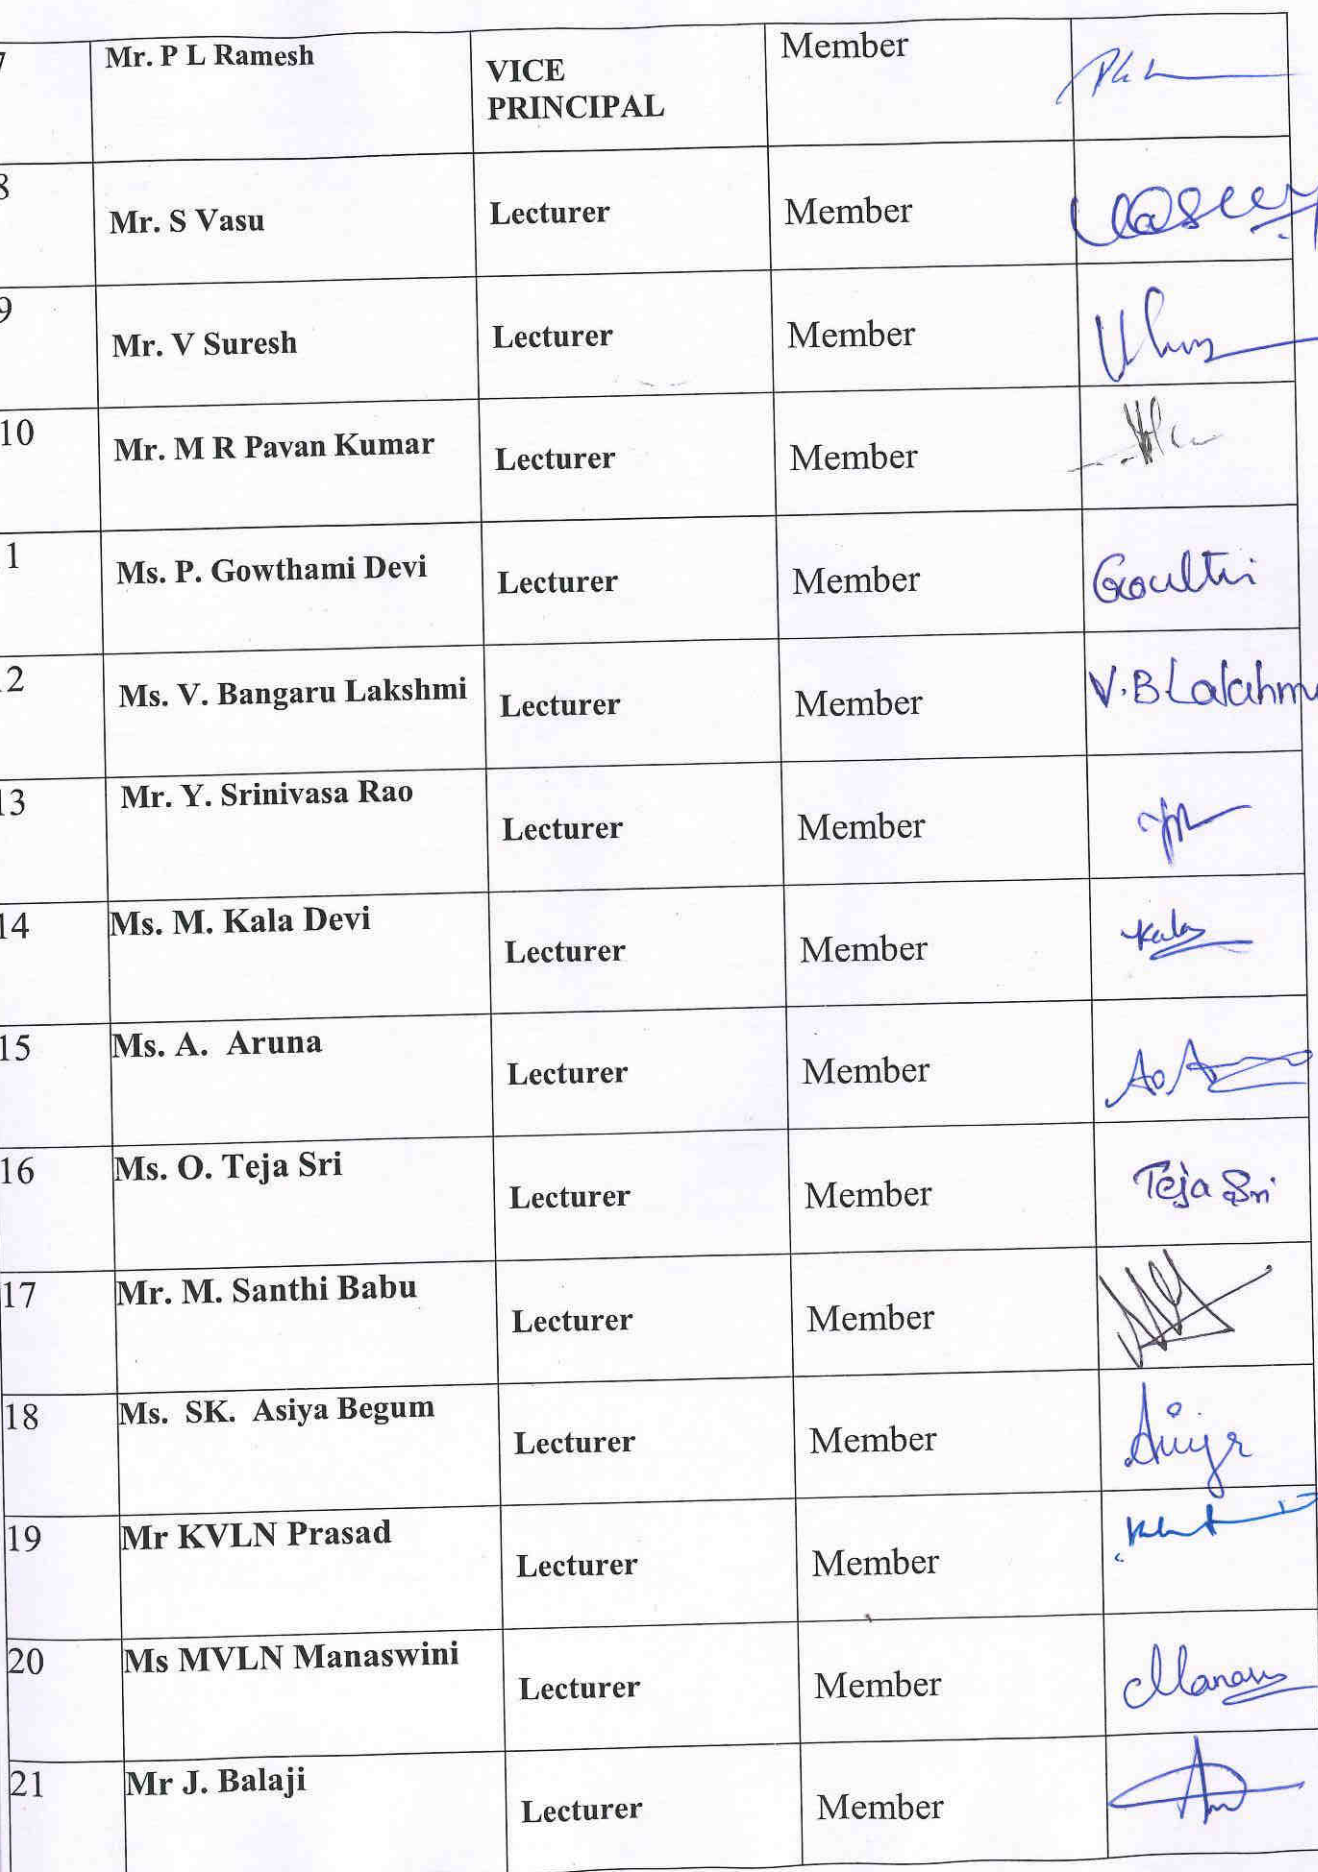 7 Mr. P L Ramesh VICE PRINCIPAL Member
8 Mr. S Vasu Lecturer Member
9 Mr. V Suresh Lecturer Member
10 Mr. M R Pavan Kumar Lecturer Member
1 Ms. P. Gowthami Devi Lecturer Member
2 Ms. V. Bangaru Lakshmi Lecturer Member V.B Lakshm
13 Mr. Y. Srinivasa Rao Lecturer Member
14 Ms. M. Kala Devi Lecturer Member Kala
15 Ms. A. Aruna Lecturer Member
16 Ms. O. Teja Sri Lecturer Member Teja Sri
17 Mr. M. Santhi Babu Lecturer Member
18 Ms. SK. Asiya Begum Lecturer Member
19 Mr KVLN Prasad Lecturer Member
20 Ms MVLN Manaswini Lecturer Member
21 Mr J. Balaji Lecturer Member